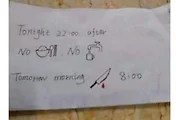 Tonight 22:00 after
No No
Tomorrow morning 8:00